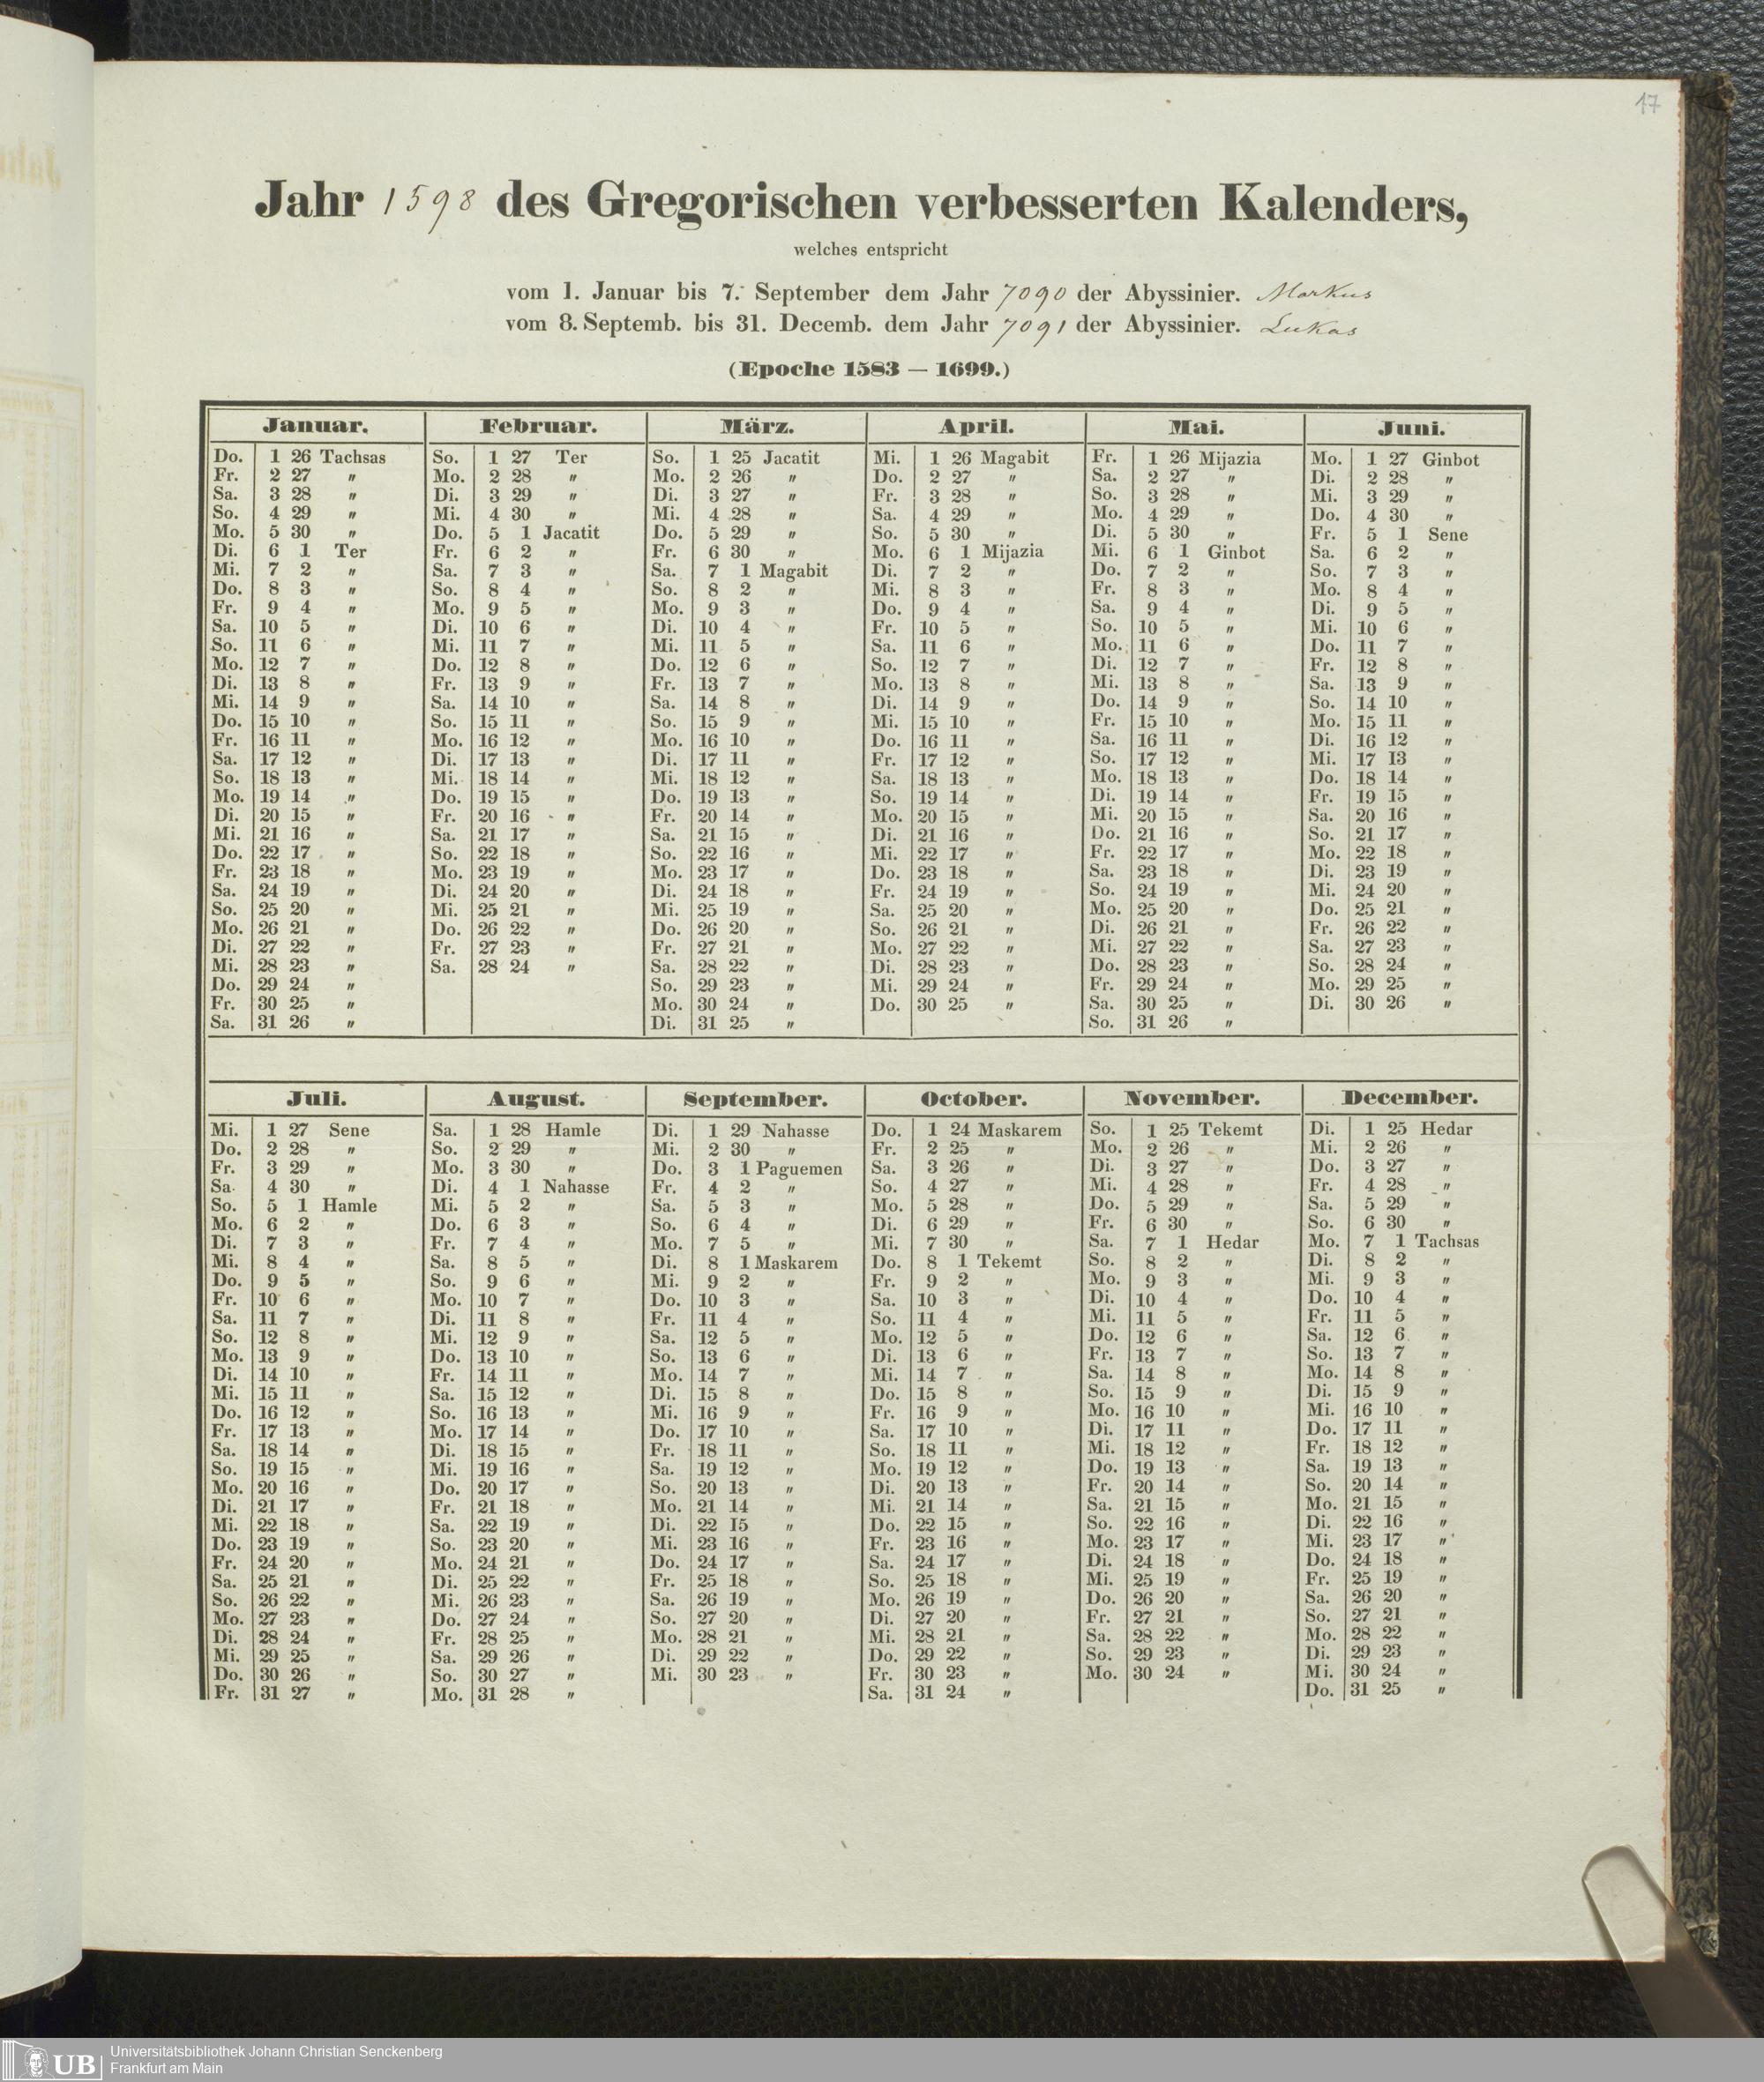 17
Jahr 1598 des Gregorischen verbesserten Kalenders,
welches entspricht
vom 1. Januar bis 7. September dem Jahr 7090 der Abyssinier. Markus
vom 8. Septemb. bis 31. Decemb. dem Jahr 7091 der Abyssinier. Lukas
(Epoche 1583 — 1699.)
Januar. Februar. März. April. Mai. Juni.
Do. 1 26 Tachsas So. 1 27 Ter So. 1 25 Jacatit Mi. 1 26 Magabit Fr. 1 26 Mijazia Mo. 1 27 Ginbot
Fr. 2 27 " Mo. 2 28 " Mo. 2 26 " Do. 2 27 " Sa. 2 27 " Di. 2 28 "
Sa. 3 28 " Di. 3 29 " Di. 3 27 " Fr. 3 28 " So. 3 28 " Mi. 3 29 "
So. 4 29 " Mi. 4 30 " Mi. 4 28 " Sa. 4 29 " Mo. 4 29 " Do. 4 30 "
Mo. 5 30 " Do. 5 1 Jacatit Do. 5 29 " So. 5 30 " Di. 5 30 " Fr. 5 1 Sene
Di. 6 1 Ter Fr. 6 2 " Fr. 6 30 " Mo. 6 1 Mijazia Mi. 6 1 Ginbot Sa. 6 2 "
Mi. 7 2 " Sa. 7 3 " Sa. 7 1 Magabit Di. 7 2 " Do. 7 2 " So. 7 3 "
Do. 8 3 " So. 8 4 " So. 8 2 " Mi. 8 3 " Fr. 8 3 " Mo. 8 4 "
Fr. 9 4 " Mo. 9 5 " Mo. 9 3 " Do. 9 4 " Sa. 9 4 " Di. 9 5 "
Sa. 10 5 " Di. 10 6 " Di. 10 4 " Fr. 10 5 " So. 10 5 " Mi. 10 6 "
So. 11 6 " Mi. 11 7 " Mi. 11 5 " Sa. 11 6 " Mo. 11 6 " Do. 11 7 "
Mo. 12 7 " Do. 12 8 " Do. 12 6 " So. 12 7 " Di. 12 7 " Fr. 12 8 "
Di. 13 8 " Fr. 13 9 " Fr. 13 7 " Mo. 13 8 " Mi. 13 8 " Sa. 13 9 "
Mi. 14 9 " Sa. 14 10 " Sa. 14 8 " Di. 14 9 " Do. 14 9 " So. 14 10 "
Do. 15 10 " So. 15 11 " So. 15 9 " Mi. 15 10 " Fr. 15 10 " Mo. 15 11 "
Fr. 16 11 " Mo. 16 12 " Mo. 16 10 " Do. 16 11 " Sa. 16 11 " Di. 16 12 "
Sa. 17 12 " Di. 17 13 " Di. 17 11 " Fr. 17 12 " So. 17 12 " Mi. 17 13 "
So. 18 13 " Mi. 18 14 " Mi. 18 12 " Sa. 18 13 " Mo. 18 13 " Do. 18 14 "
Mo. 19 14 " Do. 19 15 " Do. 19 13 " So. 19 14 " Di. 19 14 " Fr. 19 15 "
Di. 20 15 " Fr. 20 16 " Fr. 20 14 " Mo. 20 15 " Mi. 20 15 " Sa. 20 16 "
Mi. 21 16 " Sa. 21 17 " Sa. 21 15 " Di. 21 16 " Do. 21 16 " So. 21 17 "
Do. 22 17 " So. 22 18 " So. 22 16 " Mi. 22 17 " Fr. 22 17 " Mo. 22 18 "
Fr. 23 18 " Mo. 23 19 " Mo. 23 17 " Do. 23 18 " Sa. 23 18 " Di. 23 19 "
Sa. 24 19 " Di. 24 20 " Di. 24 18 " Fr. 24 19 " So. 24 19 " Mi. 24 20 "
So. 25 20 " Mi. 25 21 " Mi. 25 19 " Sa. 25 20 " Mo. 25 20 " Do. 25 21 "
Mo. 26 21 " Do. 26 22 " Do. 26 20 " So. 26 21 " Di. 26 21 " Fr. 26 22 "
Di. 27 22 " Fr. 27 23 " Fr. 27 21 " Mo. 27 22 " Mi. 27 22 " Sa. 27 23 "
Mi. 28 23 " Sa. 28 24 " Sa. 28 22 " Di. 28 23 " Do. 28 23 " So. 28 24 "
Do. 29 24 " So. 29 23 " Mi. 29 24 " Fr. 29 24 " Mo. 29 25 "
Fr. 30 25 " Mo. 30 24 " Do. 30 25 " Sa. 30 25 " Di. 30 26 "
Sa. 31 26 " Di. 31 25 " So. 31 26 "
Juli. August. September. October. November. December.
Mi. 1 27 Sene Sa. 1 28 Hamle Di. 1 29 Nahasse Do. 1 24 Maskarem So. 1 25 Tekemt Di. 1 25 Hedar
Do. 2 28 " So. 2 29 " Mi. 2 30 " Fr. 2 25 " Mo. 2 26 " Mi. 2 26 "
Fr. 3 29 " Mo. 3 30 " Do. 3 1 Paguemen Sa. 3 26 " Di. 3 27 " Do. 3 27 "
Sa. 4 30 " Di. 4 1 Nahasse Fr. 4 2 " So. 4 27 " Mi. 4 28 " Fr. 4 28 "
So. 5 1 Hamle Mi. 5 2 " Sa. 5 3 " Mo. 5 28 " Do. 5 29 " Sa. 5 29 "
Mo. 6 2 " Do. 6 3 " So. 6 4 " Di. 6 29 " Fr. 6 30 " So. 6 30 "
Di. 7 3 " Fr. 7 4 " Mo. 7 5 " Mi. 7 30 " Sa. 7 1 Hedar Mo. 7 1 Tachsas
Mi. 8 4 " Sa. 8 5 " Di. 8 1 Maskarem Do. 8 1 Tekemt So. 8 2 " Di. 8 2 "
Do. 9 5 " So. 9 6 " Mi. 9 2 " Fr. 9 2 " Mo. 9 3 " Mi. 9 3 "
Fr. 10 6 " Mo. 10 7 " Do. 10 3 " Sa. 10 3 " Di. 10 4 " Do. 10 4 "
Sa. 11 7 " Di. 11 8 " Fr. 11 4 " So. 11 4 " Mi. 11 5 " Fr. 11 5 "
So. 12 8 " Mi. 12 9 " Sa. 12 5 " Mo. 12 5 " Do. 12 6 " Sa. 12 6 "
Mo. 13 9 " Do. 13 10 " So. 13 6 " Di. 13 6 " Fr. 13 7 " So. 13 7 "
Di. 14 10 " Fr. 14 11 " Mo. 14 7 " Mi. 14 7 " Sa. 14 8 " Mo. 14 8 "
Mi. 15 11 " Sa. 15 12 " Di. 15 8 " Do. 15 8 " So. 15 9 " Di. 15 9 "
Do. 16 12 " So. 16 13 " Mi. 16 9 " Fr. 16 9 " Mo. 16 10 " Mi. 16 10 "
Fr. 17 13 " Mo. 17 14 " Do. 17 10 " Sa. 17 10 " Di. 17 11 " Do. 17 11 "
Sa. 18 14 " Di. 18 15 " Fr. 18 11 " So. 18 11 " Mi. 18 12 " Fr. 18 12 "
So. 19 15 " Mi. 19 16 " Sa. 19 12 " Mo. 19 12 " Do. 19 13 " Sa. 19 13 "
Mo. 20 16 " Do. 20 17 " So. 20 13 " Di. 20 13 " Fr. 20 14 " So. 20 14 "
Di. 21 17 " Fr. 21 18 " Mo. 21 14 " Mi. 21 14 " Sa. 21 15 " Mo. 21 15 "
Mi. 22 18 " Sa. 22 19 " Di. 22 15 " Do. 22 15 " So. 22 16 " Di. 22 16 "
Do. 23 19 " So. 23 20 " Mi. 23 16 " Fr. 23 16 " Mo. 23 17 " Mi. 23 17 "
Fr. 24 20 " Mo. 24 21 " Do. 24 17 " Sa. 24 17 " Di. 24 18 " Do. 24 18 "
Sa. 25 21 " Di. 25 22 " Fr. 25 18 " So. 25 18 " Mi. 25 19 " Fr. 25 19 "
So. 26 22 " Mi. 26 23 " Sa. 26 19 " Mo. 26 19 " Do. 26 20 " Sa. 26 20 "
Mo. 27 23 " Do. 27 24 " So. 27 20 " Di. 27 20 " Fr. 27 21 " So. 27 21 "
Di. 28 24 " Fr. 28 25 " Mo. 28 21 " Mi. 28 21 " Sa. 28 22 " Mo. 28 22 "
Mi. 29 25 " Sa. 29 26 " Di. 29 22 " Do. 29 22 " So. 29 23 " Di. 29 23 "
Do. 30 26 " So. 30 27 " Mi. 30 23 " Fr. 30 23 " Mo. 30 24 " Mi. 30 24 "
Fr. 31 27 " Mo. 31 28 " Sa. 31 24 " Do. 31 25 "
UB Universitätsbibliothek Johann Christian Senckenberg
Frankfurt am Main